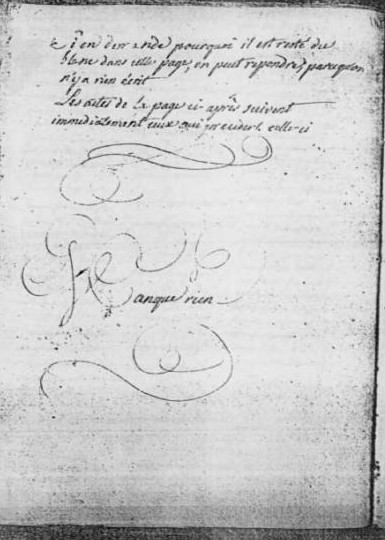 Si on demande pourquoi il est resté du
blanc dans cette page, on peut repondre, parcequon
n'y a rien écrit
Les actes de la page ci-après suivent
immediatement ceux qui precedent celle ci
Manque rien